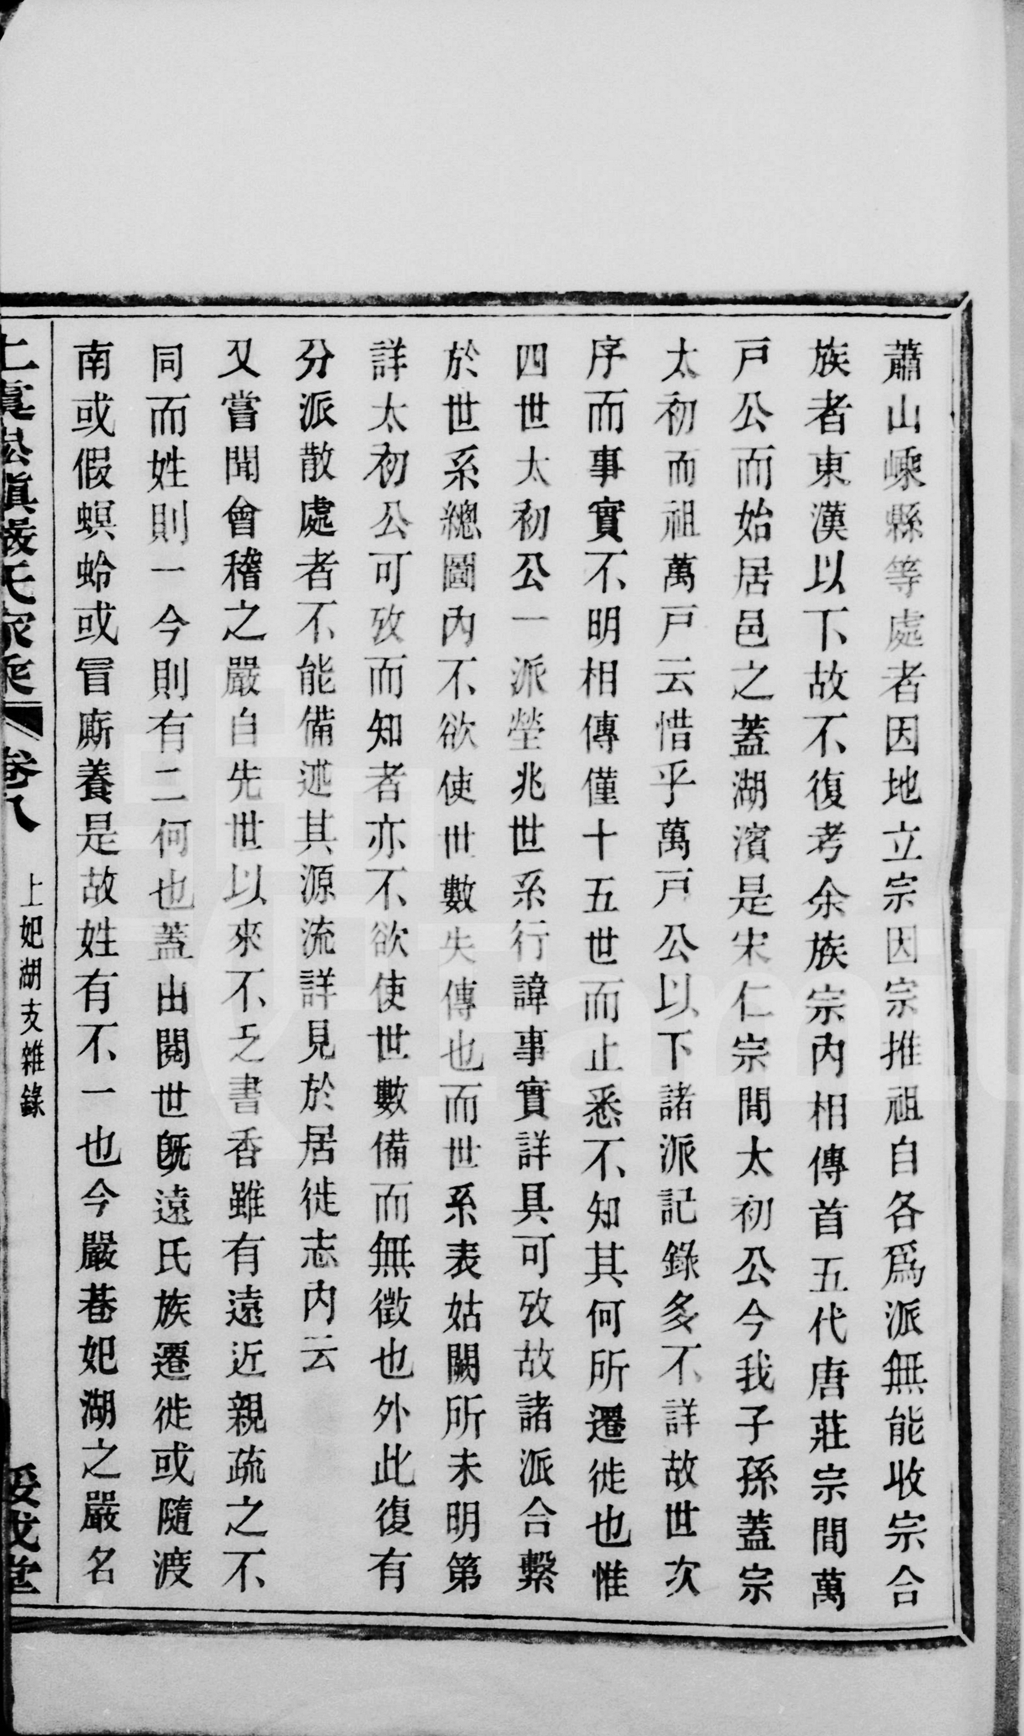 蕭山嵊縣等處者因地立宗因宗推祖自各爲派無能收宗合
族者東漢以下故不復考余族宗內相傳首五代唐莊宗間萬
戸公而始居邑之蓋湖濱是宋仁宗間太初公今我子孫蓋宗
太初而祖萬戸云惜乎萬戸公以下諸派記錄多不詳故世次
序而事實不明相傳僅十五世而止悉不知其何所遷徙也惟
四世太初公一派塋兆世系行諱事實詳具可攷故諸派合繫
於世系總圖內不欲使世數失傳也而世系表姑闕所未明第
詳太初公可攷而知者亦不欲使世數備而無徵也外此復有
分派散處者不能備述其源流詳見於居徙志內云
又嘗聞會稽之嚴自先世以來不乏書香雖有遠近親疏之不
同而姓則一今則有二何也蓋由閱世旣遠氏族遷徙或隨渡
南或假螟蛉或冒廝養是故姓有不一也今嚴巷妃湖之嚴名
上虞崧鎭嚴氏家乘 卷八 上妃湖支雜錄 綏成堂